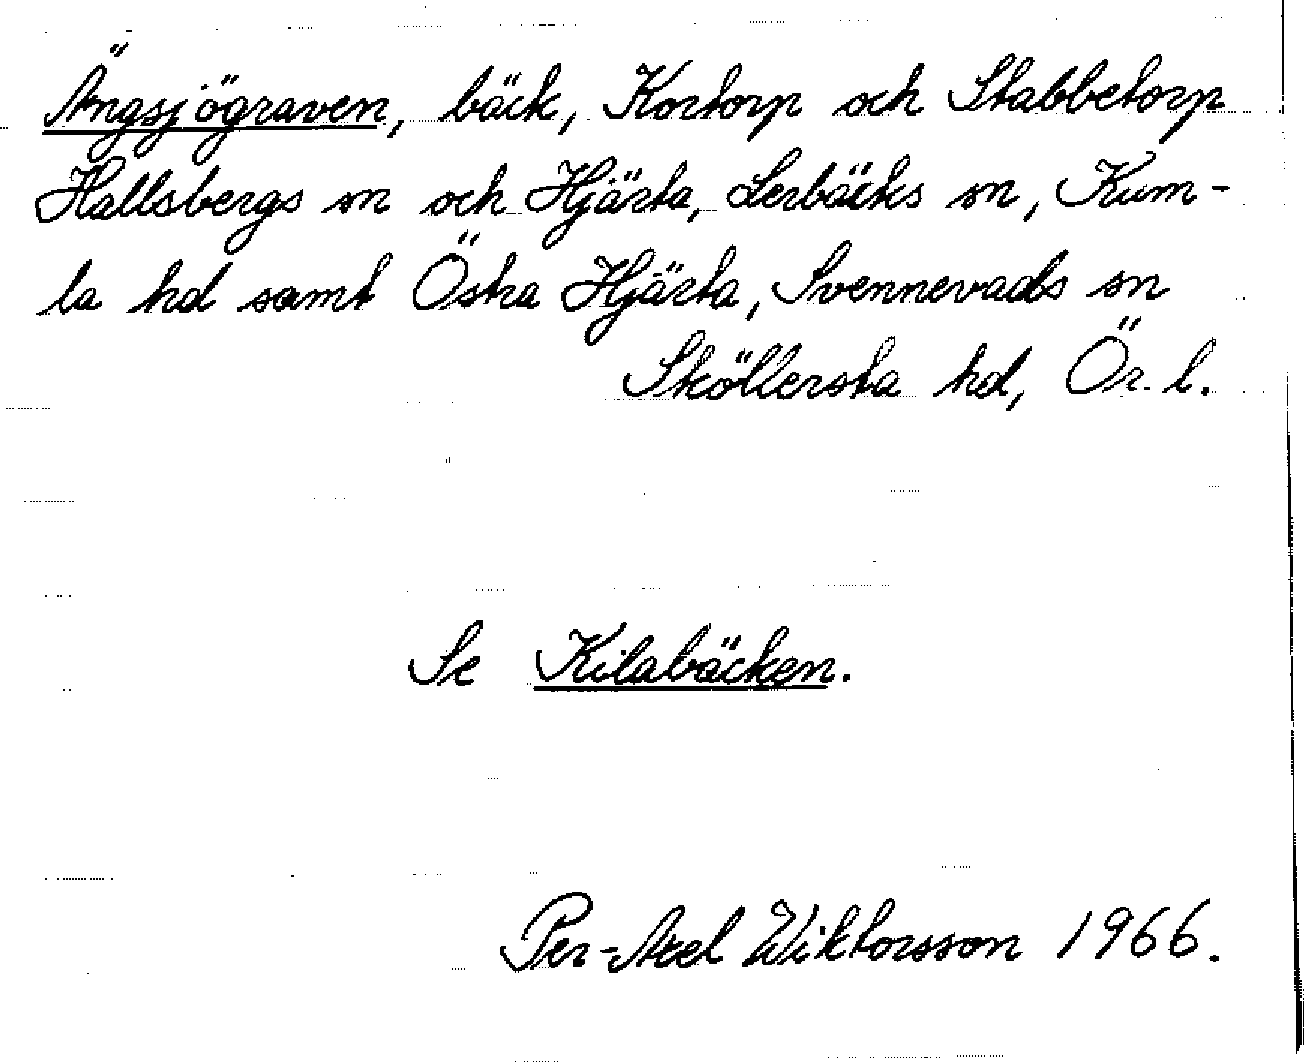 Ängsjögraven, bäck, Kortorp och Stabbetorp
Hallsbergs sn och Hjärta, Lerbäcks sn, Kum-
la hd samt Östra Hjärta, Svennevads sn
Sköllersta hd, Ör. l.
Se Kilabäcken.
Per-Axel Wiktorsson 1966.